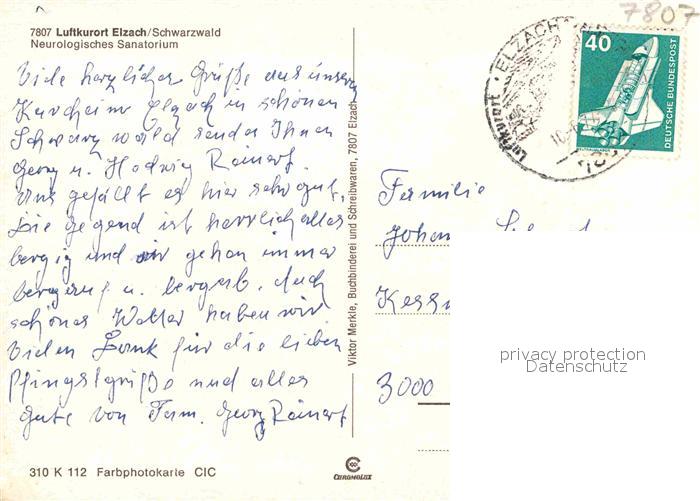 7807 Luftkurort Elzach/Schwarzwald
Neurologisches Sanatorium
Viele herzliche Grüße aus unserm
Kurheim Elzach im schönen
Schwarzwald sendet Ihnen
Georg u. Hedwig Reinert.
Uns gefällt es hier sehr gut.
Die Gegend ist herrlich alles
bergig und wir gehen immer
bergauf u. bergab. Auch
schönes Wetter haben wir
Vielen Dank für die lieben
Pfingstgrüße und alles
Gute von Fam. Georg Reinert
310 K 112 Farbphotokarte CIC
Viktor Merkle, Buchbinderei und Schreibwaren, 7807 Elzach
CHROMOLUX
7807
Luftkurort · ELZACH
40
DEUTSCHE BUNDESPOST
Familie
Johan
Kess
3000
privacy protection
Datenschutz